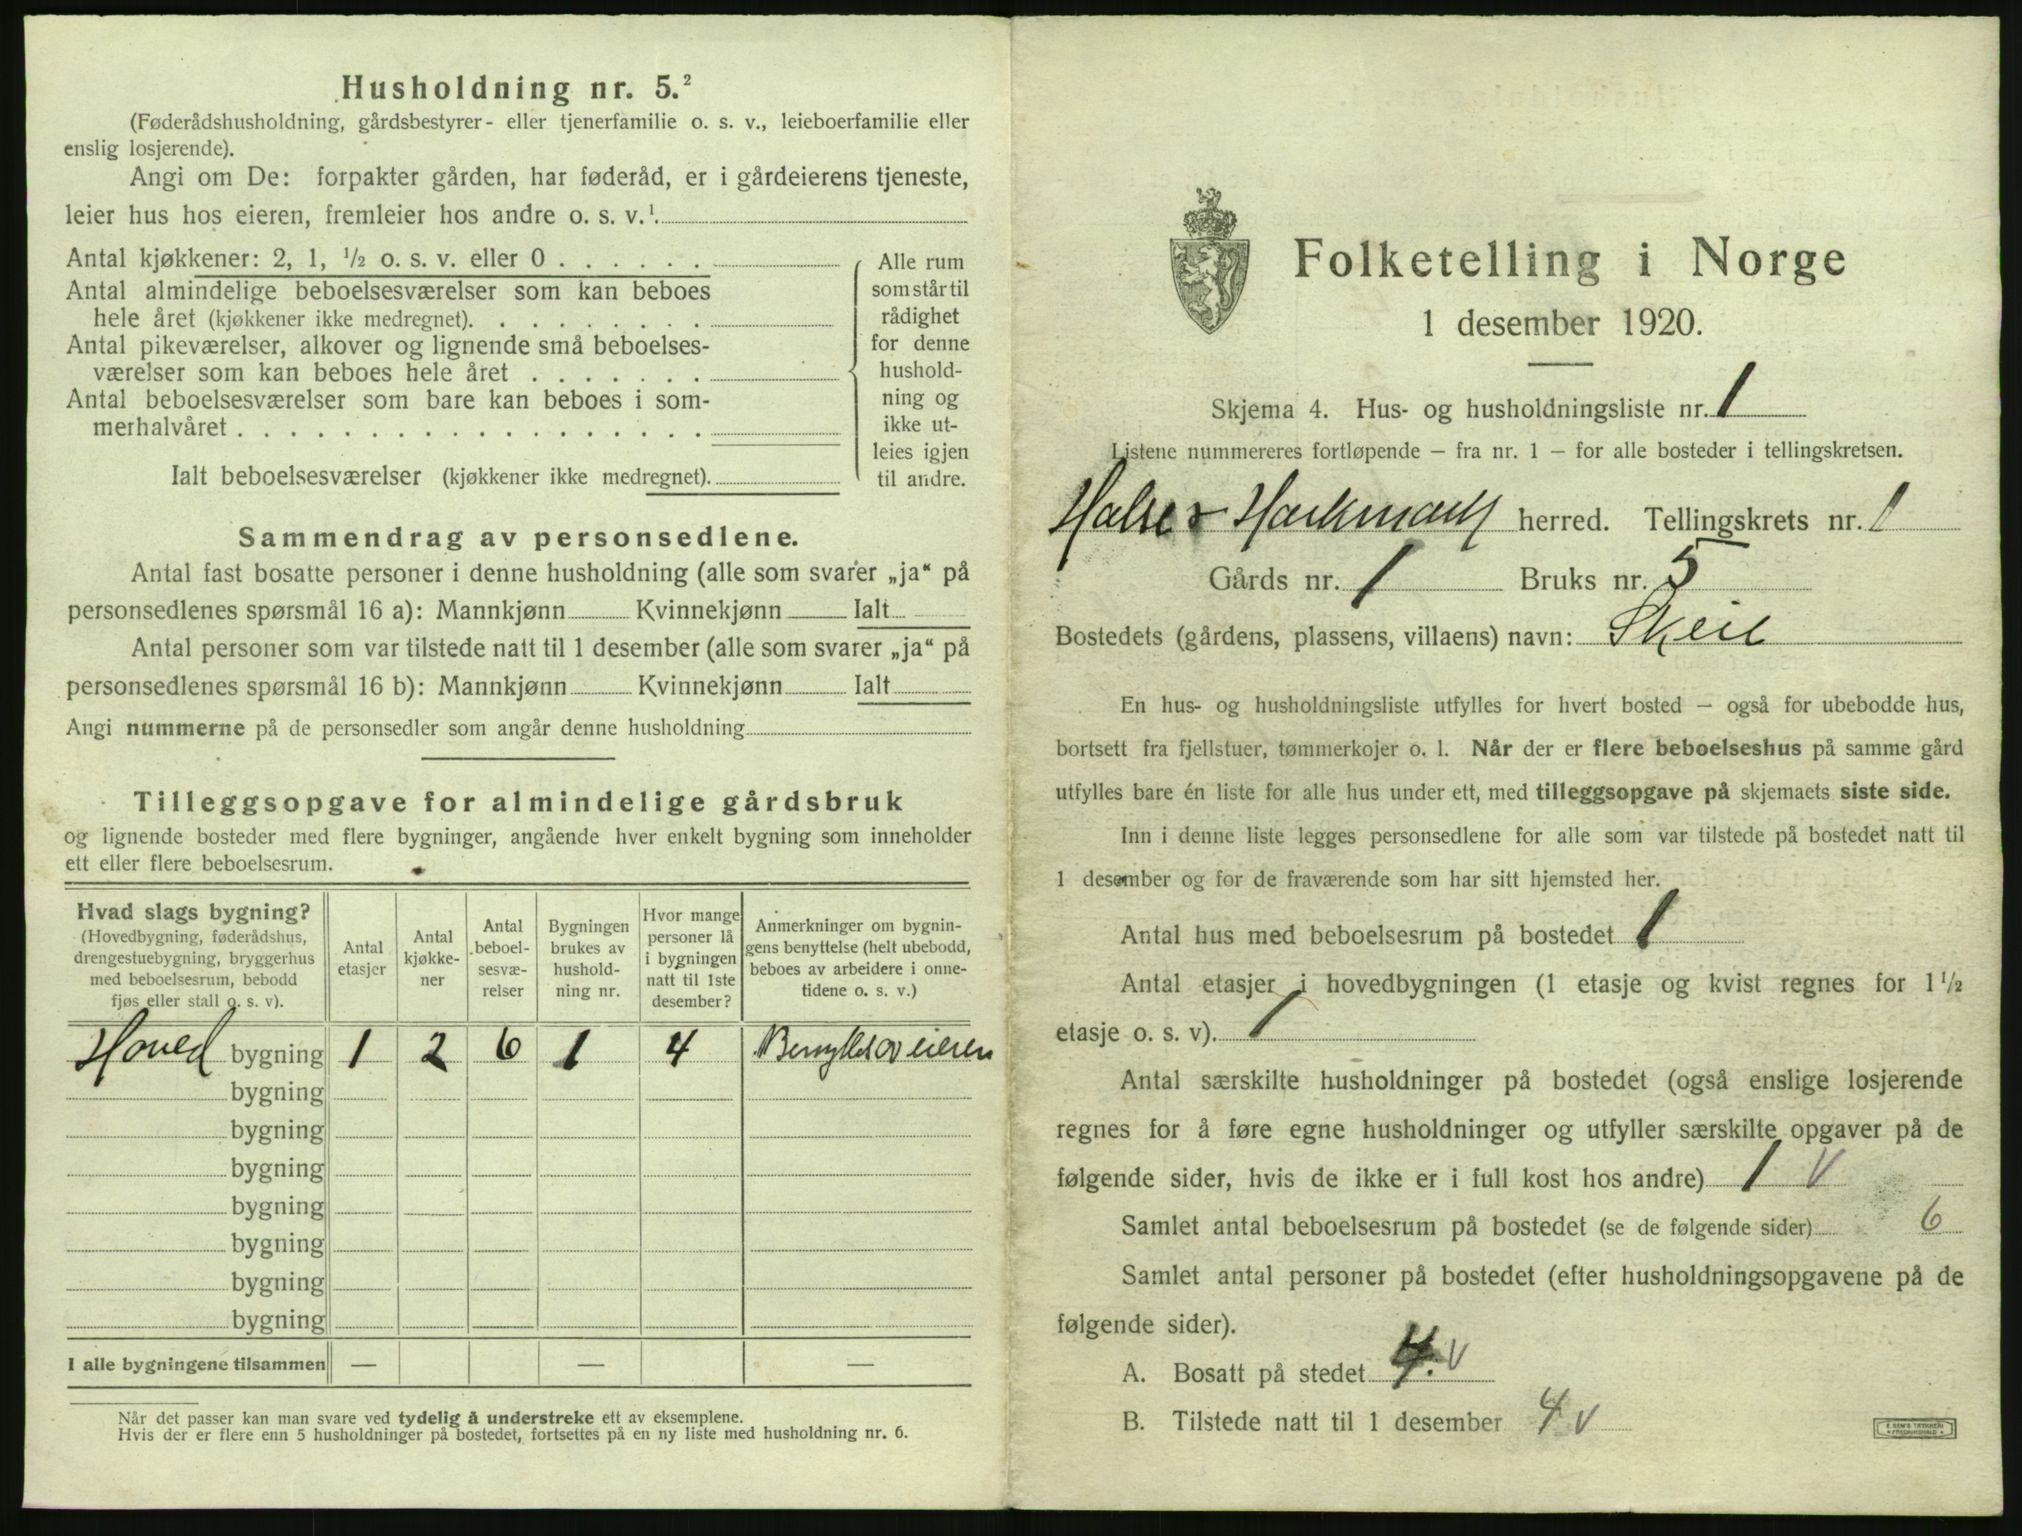 Husholdning nr. 5.²
(Føderådshusholdning, gårdsbestyrer- eller tjenerfamilie o. s. v., leieboerfamilie eller
enslig losjerende).
Angi om De: forpakter gården, har føderåd, er i gårdeierens tjeneste,
leier hus hos eieren, fremleier hos andre o. s. v.¹
Antal kjøkkener: 2, 1, ½ o. s. v. eller 0
Antal almindelige beboelsesværelser som kan beboes
hele året (kjøkkener ikke medregnet).
Antal pikeværelser, alkover og lignende små beboelses-
værelser som kan beboes hele året
Antal beboelsesværelser som bare kan beboes i som-
merhalvåret
Ialt beboelsesværelser (kjøkkener ikke medregnet).
Alle rum
som står til
rådighet
for denne
hushold-
ning og
ikke ut-
leies igjen
til andre.
Sammendrag av personsedlene.
Antal fast bosatte personer i denne husholdning (alle som svarer „ja“ på
personsedlenes spørsmål 16 a): Mannkjønn Kvinnekjønn Ialt
Antal personer som var tilstede natt til 1 desember (alle som svarer „ja“ på
personsedlenes spørsmål 16 b): Mannkjønn Kvinnekjønn Ialt
Angi nummerne på de personsedler som angår denne husholdning
Tilleggsopgave for almindelige gårdsbruk
og lignende bosteder med flere bygninger, angående hver enkelt bygning som inneholder
ett eller flere beboelsesrum.
Hvad slags bygning?
(Hovedbygning, føderådshus,
drengestuebygning, bryggerhus
med beboelsesrum, bebodd
fjøs eller stall o. s. v).
Antal
etasjer
Antal
kjøkke-
ner
Antal
beboel-
sesvæ-
relser
Bygningen
brukes av
hushold-
ning nr.
Hvor mange
personer lå
i bygningen
natt til 1ste
desember?
Anmerkninger om bygnin-
gens benyttelse (helt ubebodd,
beboes av arbeidere i onne-
tidene o. s. v.)
Hoved bygning 1 2 6 1 4 Benyttes av eieren
bygning
bygning
bygning
bygning
bygning
bygning
bygning
I alle bygningene tilsammen — — —
Når det passer kan man svare ved tydelig å understreke ett av eksemplene.
Hvis der er flere enn 5 husholdninger på bostedet, fortsettes på en ny liste med husholdning nr. 6.
Folketelling i Norge
1 desember 1920.
Skjema 4. Hus- og husholdningsliste nr. 1
Listene nummereres fortløpende – fra nr. 1 – for alle bosteder i tellingskretsen.
Halse & Harkmark herred. Tellingskrets nr. 1
Gårds nr. 1 Bruks nr. 5
Bostedets (gårdens, plassens, villaens) navn: Skeie
En hus- og husholdningsliste utfylles for hvert bosted – også for ubebodde hus,
bortsett fra fjellstuer, tømmerkojer o. l. Når der er flere beboelseshus på samme gård
utfylles bare én liste for alle hus under ett, med tilleggsopgave på skjemaets siste side.
Inn i denne liste legges personsedlene for alle som var tilstede på bostedet natt til
1 desember og for de fraværende som har sitt hjemsted her.
Antal hus med beboelsesrum på bostedet 1
Antal etasjer i hovedbygningen (1 etasje og kvist regnes for 1½
etasje o. s. v). 1
Antal særskilte husholdninger på bostedet (også enslige losjerende
regnes for å føre egne husholdninger og utfyller særskilte opgaver på de
følgende sider, hvis de ikke er i full kost hos andre) 1 V
Samlet antal beboelsesrum på bostedet (se de følgende sider) 6
Samlet antal personer på bostedet (efter husholdningsopgavene på de
følgende sider).
A. Bosatt på stedet 4. V
B. Tilstede natt til 1 desember 4 V